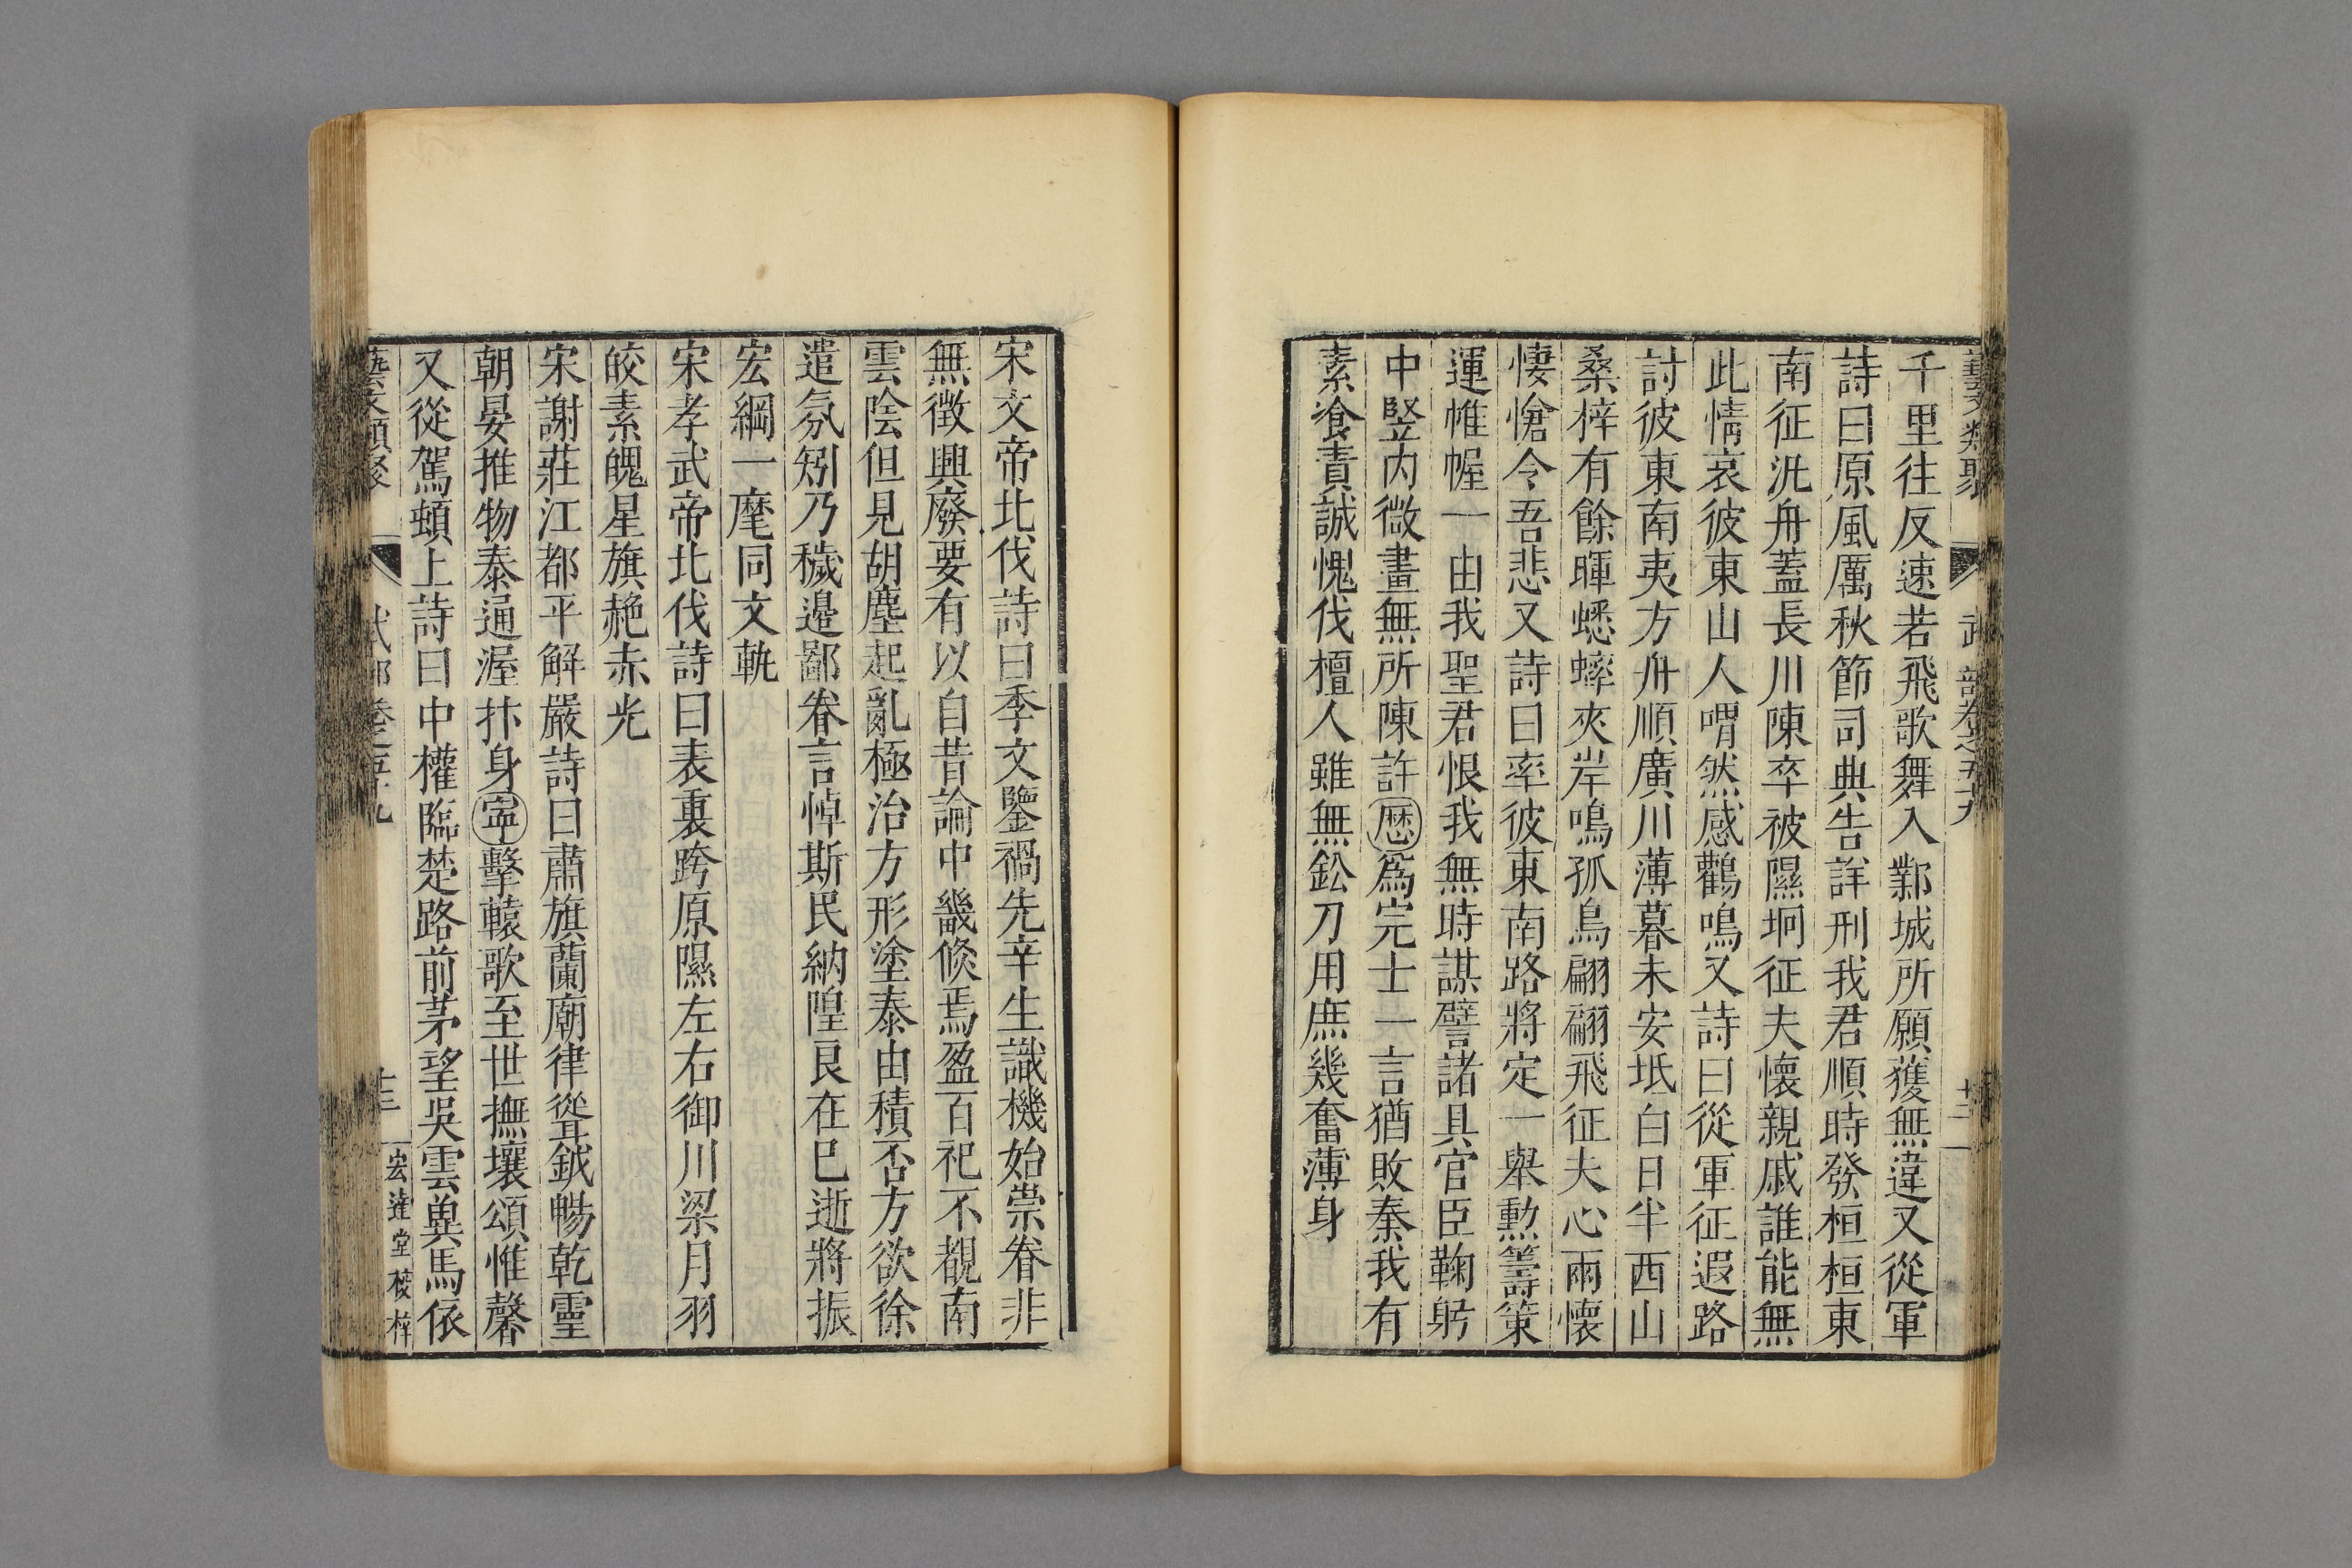 藝文類聚 武部卷之五十九 十二
千里往反速若飛歌舞入鄴城所願獲無違又從軍
詩曰原風厲秋節司典告詳刑我君順時發桓桓東
南征汎舟蓋長川陳卒被隰坰征夫懷親戚誰能無
此情哀彼東山人喟然感鸛鳴又詩曰從軍征遐路
討彼東南夷方舟順廣川薄暮未安坻白日半西山
桑梓有餘暉蟋蟀夾岸鳴孤鳥翩翩飛征夫心兩懷
悽愴令吾悲又詩曰率彼東南路將定一舉勳籌策
運帷幄一由我聖君恨我無時謀譬諸具官臣鞠躬
中堅內微畫無所陳許歷爲完士一言猶敗秦我有
素飡責誠愧伐檀人雖無鉛刀用庶幾奮薄身
宋文帝北伐詩曰季文鑒禍先辛生識機始崇眷非
無徵興廢要有以自昔論中畿倐焉盈百祀不覩南
雲陰但見胡塵起亂極治方形塗泰由積否方欲徐
遣氛矧乃穢邊鄙眷言悼斯民納隍良在已逝將振
宏綱一麾同文軌
宋孝武帝北伐詩曰表裏跨原隰左右御川梁月羽
皎素魄星旗赩赤光
宋謝莊江都平解嚴詩曰肅旗蘭廟律聳鉞暢乾靈
朝晏推物泰通渥抃身寧擊轅歌至世撫壤頌惟馨
又從駕頓上詩曰中權臨楚路前茅望吳雲兾馬依
藝文類聚 武部卷之五十九 十三 宏達堂校梓